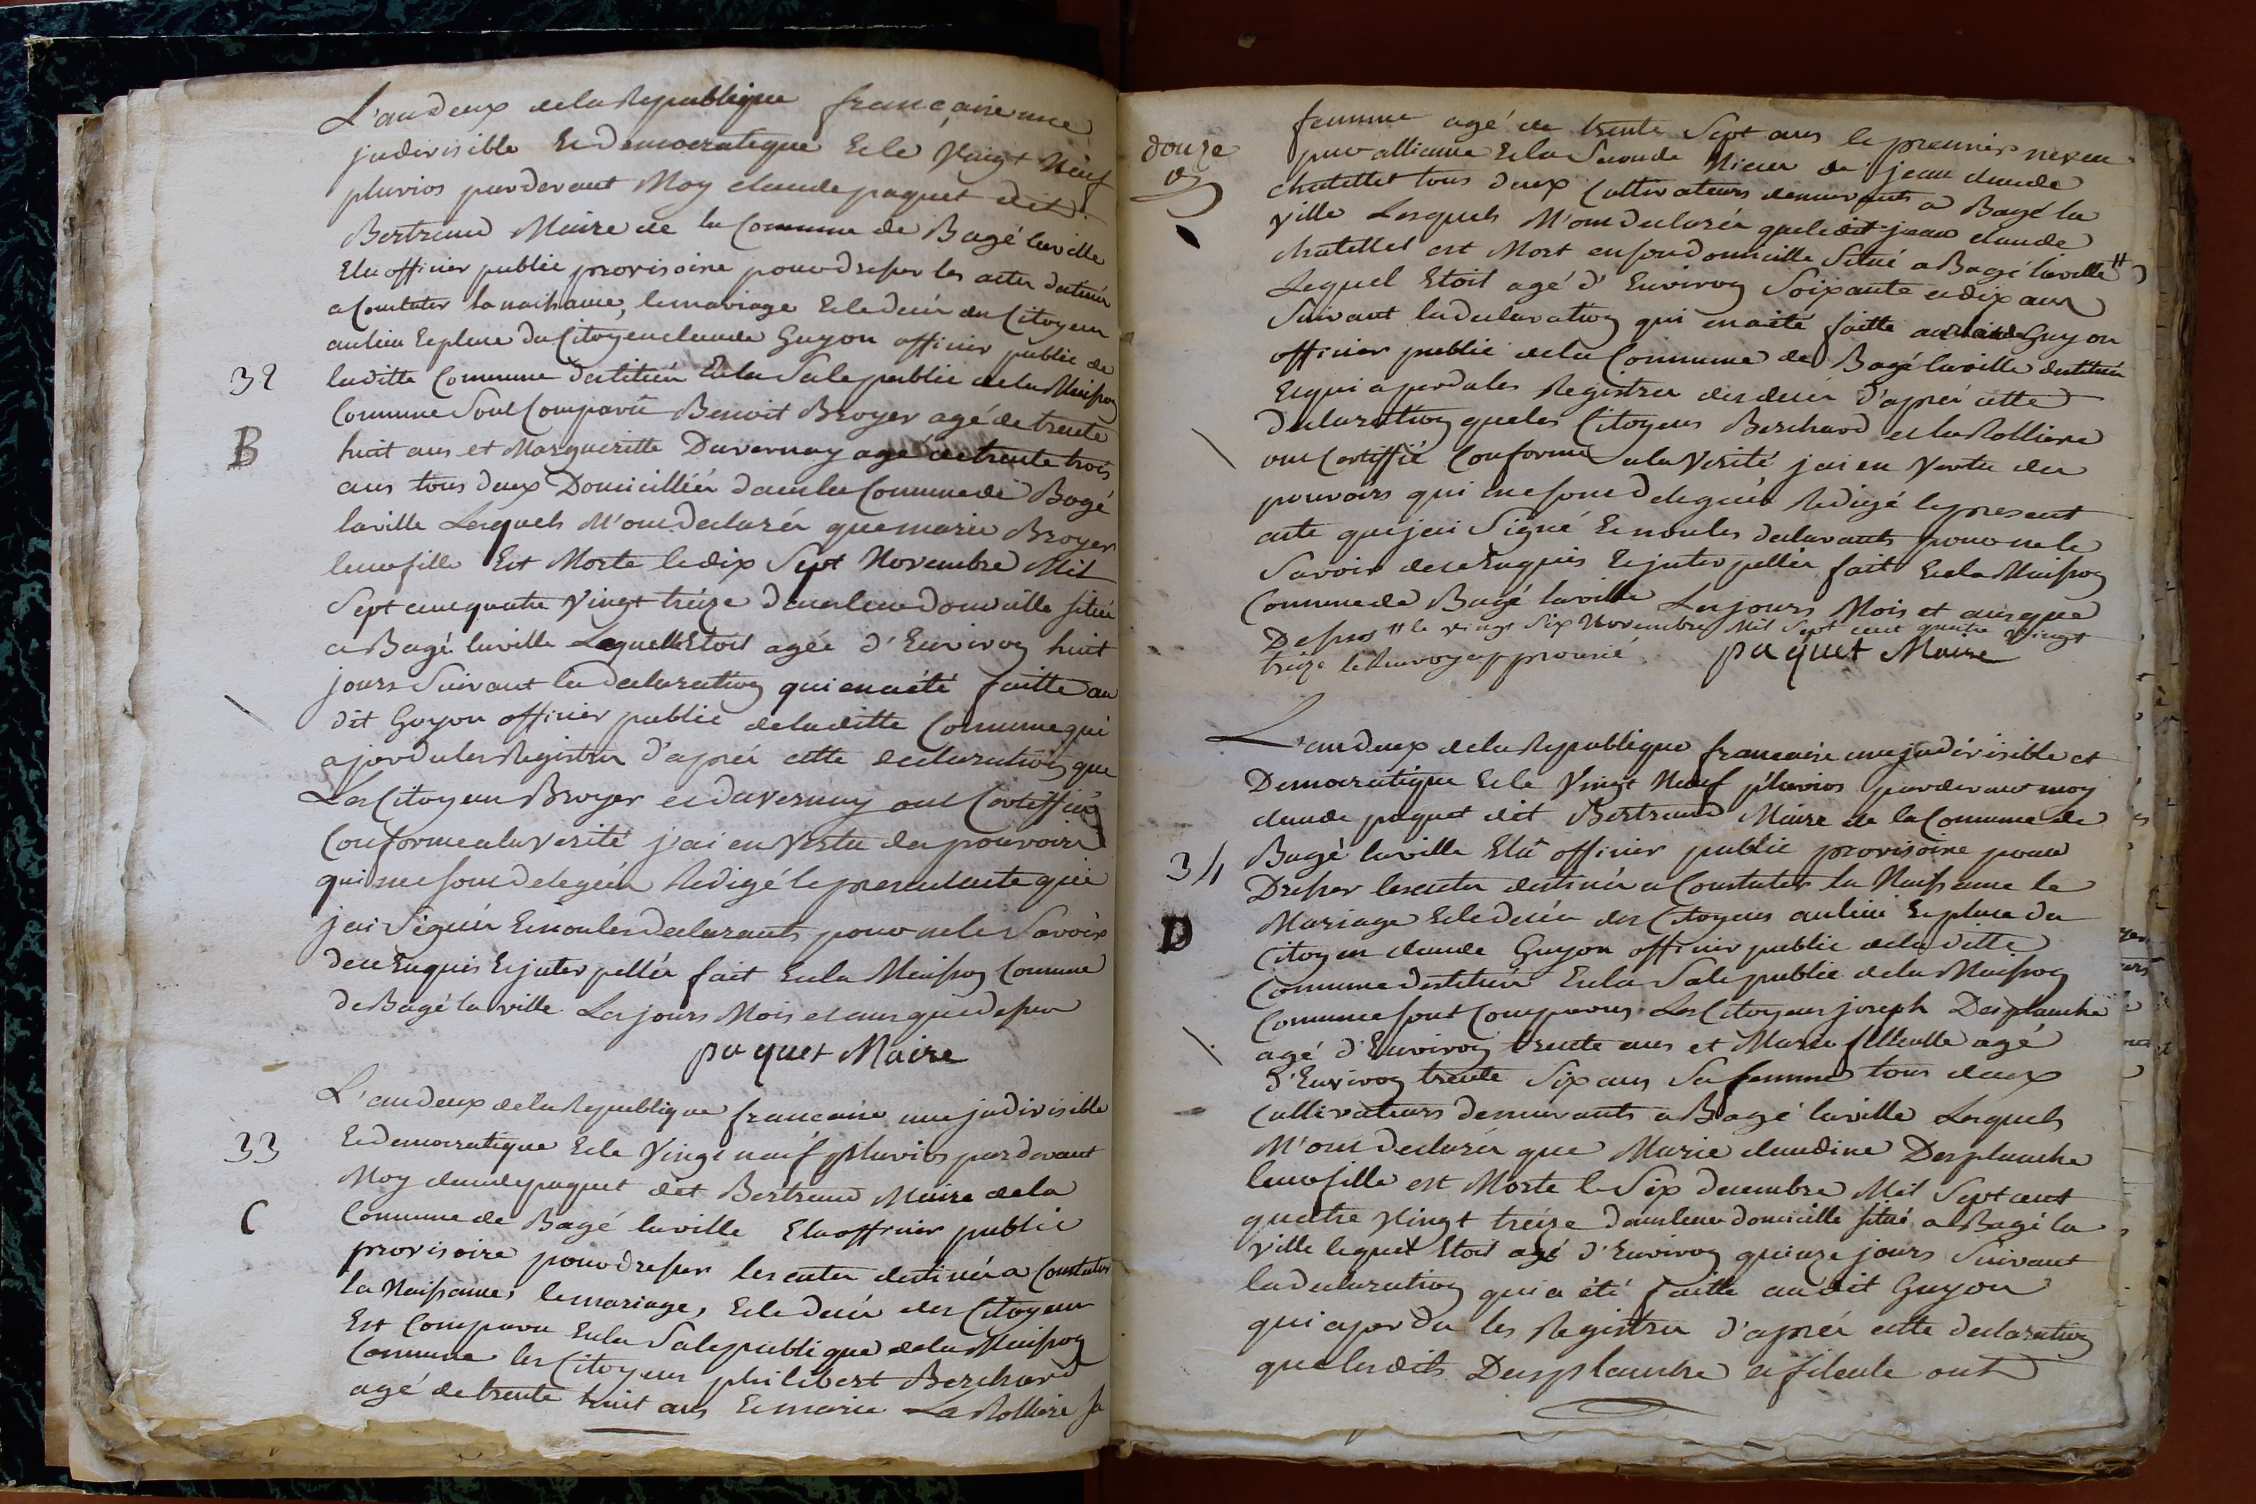 L'an deux de la Republique francaise une
jndivisible Et democratique Et le Vingt Neuf
pluvios pardevant Moy claude paquet dit
Bertrand Maire de la Commune de Bagé laville
Elu officier public provisoire pour dresser les actes destinés
a Constater la naissance, le mariage Et le decés des Citoyens
au lieu Et place du Citoyen claude Guyon officier public de
laditte Commune destitué En la Sale public de la Maison
32
Commune Sont Comparus Benoit Broyer agé de trente
B
huit ans et Marguerite Duvernay agé de trente trois
ans tous deux Domicilliés dans la Commune de Bagé
laville Lesquels M'ont declarés que marie Broyer
leur fille Est Morte le dix Sept Novembre Mil
Sept cent quatre Vingt treize dans leur domicille situé
a Bagé laville Laquelle Etoit agée d'Environ huit
jours Suivant la declaration qui en a été faitte au
dit Guyon officier public de laditte Commune qui
a perdu les Registres d'aprés cette declaration que
Les Citoyens Broyer et duvernay ont Certiffiés
Conforme a la Verité j'ai en Vertu des pouvoirs
qui me sont delegués Redigé le present acte que
j'ai Signés Et non les declarants pour ne le Savoir
de ce Enquis Et juterpellés fait En la Maison Commune
de Bagé la ville Les jours Mois et ans que dessus
paquet Maire
L'an deux de la Republique francaise une jndivisible
33
Et democratique Et le Vingt neuf pluvios pardevant
Moy claude paquet dit Bertrand Maire de la
C
Commune de Bagé laville Elu officier public
provisoire pour dresser les actes destinés a Constater
la Naissance, le mariage, Et le decés des Citoyens
Est Comparu En la Sale publique de la Maison
Commune les Citoyens philibert Berchard
agé de trente huit ans Et marie La Rolliere sa
douze
femme agé de trente Sept ans le premier neveu
par alliance Et la Seconde Niece de jean claude
chatellet tous deux Cultivateurs demeurants a Bagé la
ville Lesquels M'ont declarés que ledit jean claude
chatellet est Mort en son domicille Situé a Bagé laville #
Lequel Etoit agé d'Environ Soixante et dix ans
Suivant la declaration qui en a été faitte au Guyon
officier public de la Commune de Bagé laville destitué
Et qui a perdu les Registres des decés D'aprés cette
Declaration que les Citoyens Berchard et la Rolliere
ont Certiffié Conforme a la Verité j'ai en Vertu des
pouvoirs qui me sont delegués Redigé le present
acte que j'ai Signé Et non les declarants pour ne le
Savoir de ce Enquis Et juterpellés fait En la Maison
Commune de Bagé laville Les jours Mois et ans que
Dessus # le vingt Six Novembre Mil Sept cent quatre Vingt
treize le Renvoy approuvé paquet Maire
L'an deux de la Republique francaise une jndivisible et
Democratique Et le Vingt Neuf pluvios pardevant moy
claude paquet dit Bertrand Maire de la Commune de
Bagé laville Elu officier public provisoire pour
34
Dresser les actes destinés a Constater la Naissance le
Mariage Et le decés des Citoyens au lieu Et place du
D
Citoyen claude Guyon officier public de la ditte
Commune destitué En la Sale public de la Maison
Commune sont Comparus Les Citoyens joseph Desplanche
agé d'Environ trente ans et Marie filleulle agé
d'Environ trente Six ans Sa femme tous deux
Cultivateurs demeurants a Bagé laville Lesquels
M'ont declarés que Marie claudine Desplanche
leur fille est Morte le Six decembre Mil Sept cent
quatre Vingt treize dans leur domicille situé a Bagé la
ville lequel Etoit agé d'Environ quinze jours Suivant
la declaration qui a été faitte audit Guyon
qui a perdu les Registres d'aprés cette declaration
que lesdits Desplanche et fileule ont